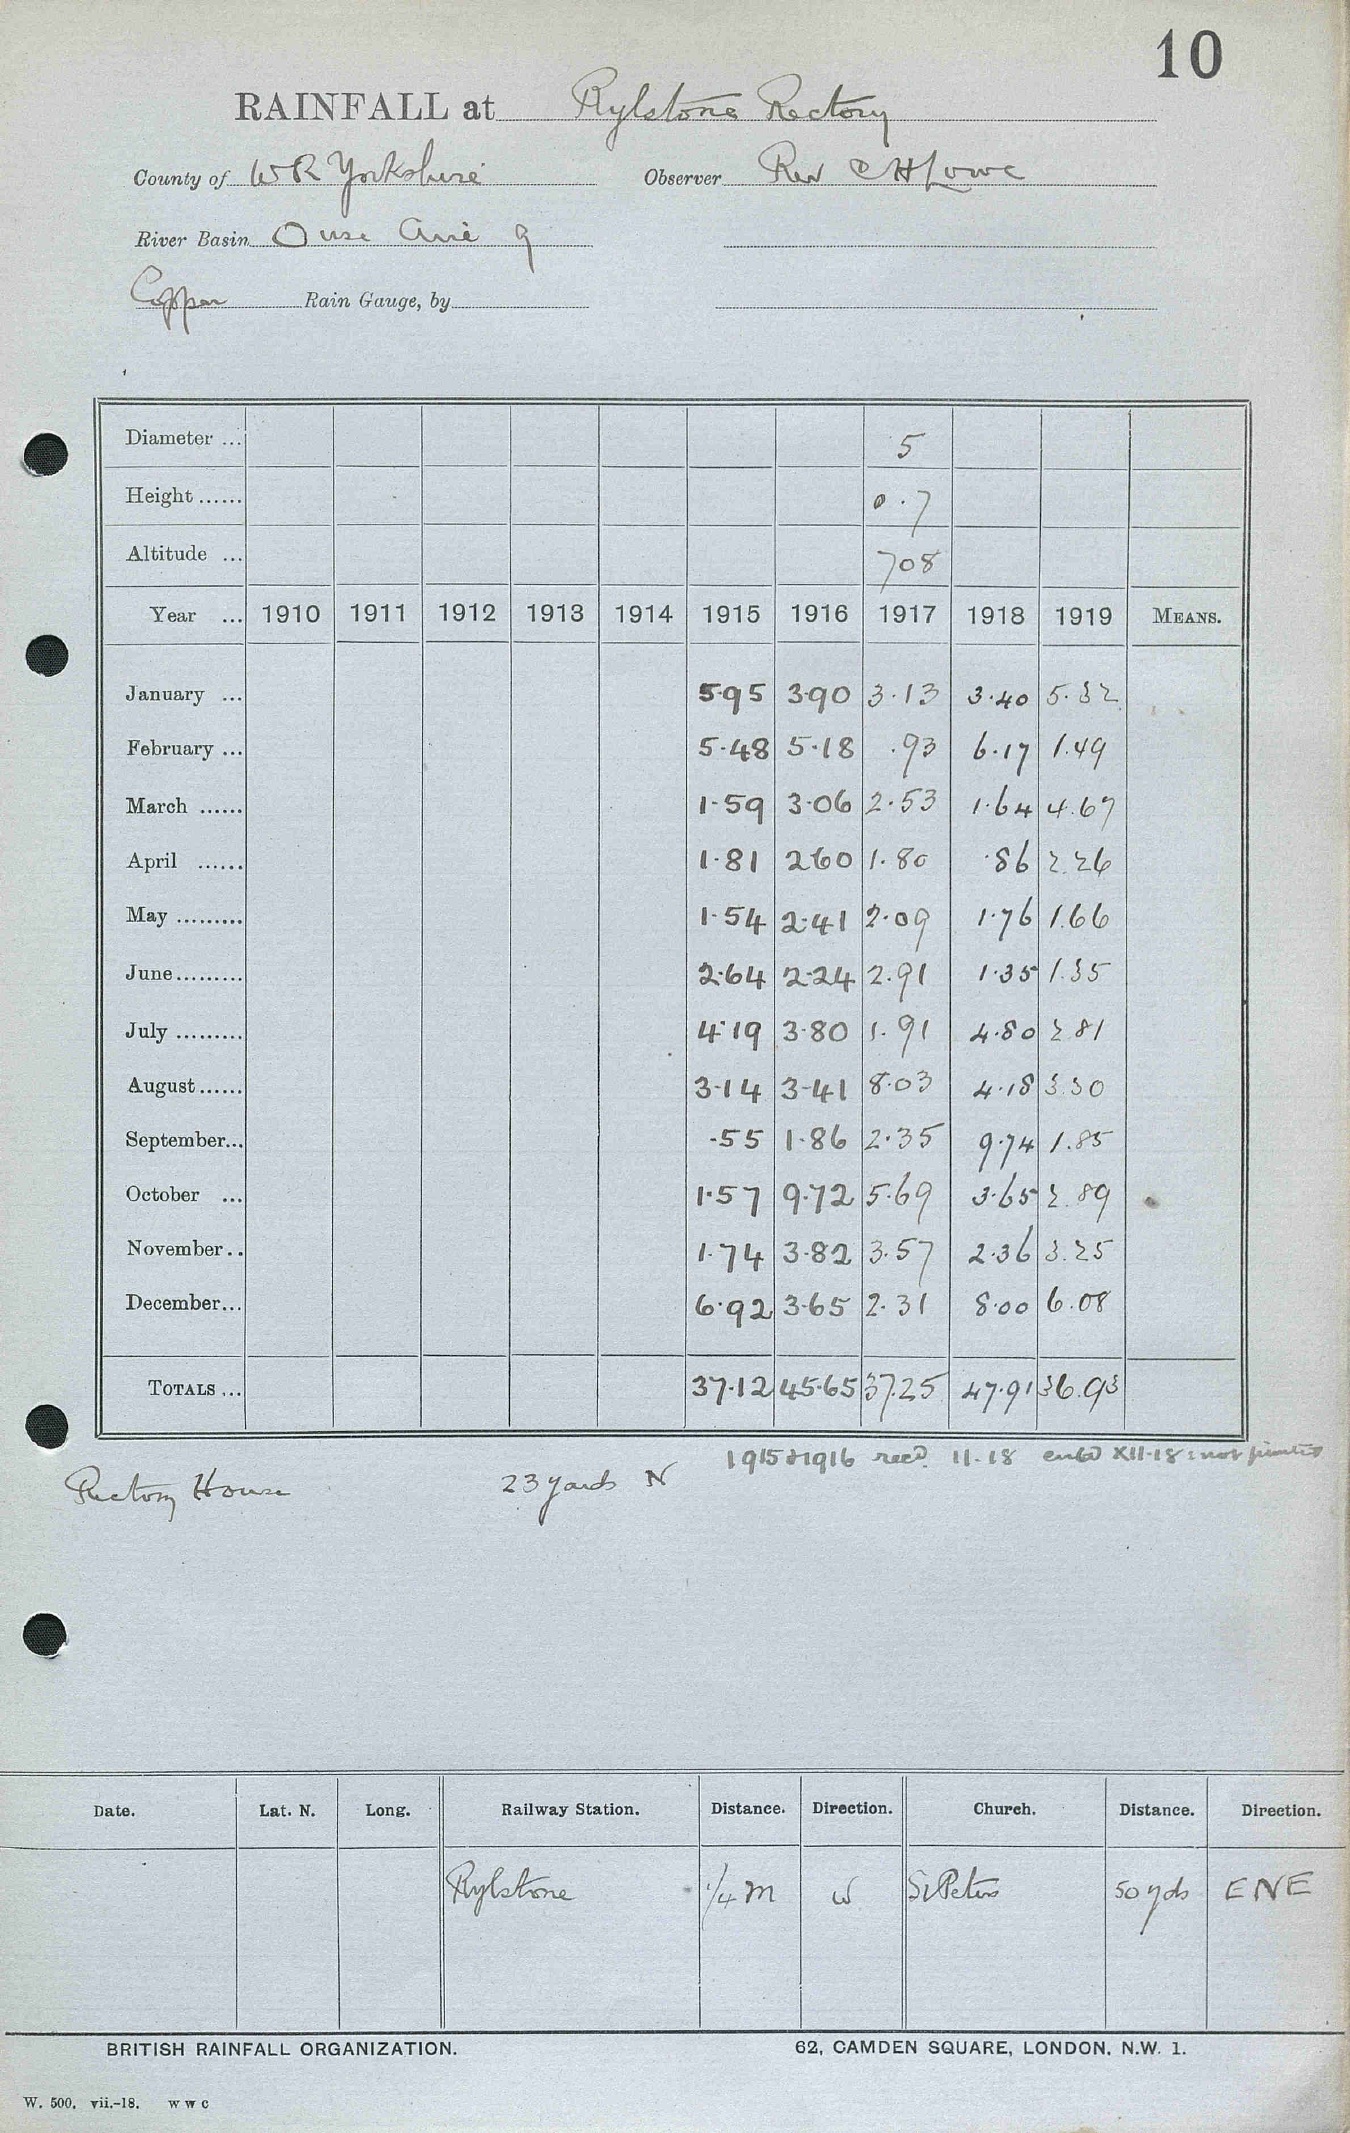 10
RAINFALL at Rylstone Rectory
County of WR Yorkshire Observer Rev C H Lowe
River Basin Ouse Aire 9
Copper Rain Gauge, by
Diameter ... 5
Height ...... 0.7
Altitude ... 708
Year ... 1910 1911 1912 1913 1914 1915 1916 1917 1918 1919 MEANS.
January ... 5.95 3.90 3.13 3.40 5.32
February ... 5.48 5.18 .93 6.17 1.49
March ...... 1.59 3.06 2.53 1.64 4.67
April ...... 1.81 2.60 1.80 .86 2.26
May ......... 1.54 2.41 2.09 1.76 1.66
June ......... 2.64 2.24 2.91 1.35 1.35
July ......... 4.19 3.80 1.91 4.80 2.81
August ...... 3.14 3.41 8.03 4.18 3.30
September... .55 1.86 2.35 9.74 1.85
October ... 1.57 9.72 5.69 3.65 2.89
November .. 1.74 3.82 3.57 2.36 3.25
December... 6.92 3.65 2.31 8.00 6.08
TOTALS ... 37.12 45.65 37.25 47.91 36.93
1915 & 1916 recd. 11-18 entd XII-18: not printed
Rectory House 23 yards N
Date. Lat. N. Long. Railway Station. Distance. Direction. Church. Distance. Direction.
Rylstone 1/4 m W St Peters 50 yds ENE
BRITISH RAINFALL ORGANIZATION. 62, CAMDEN SQUARE, LONDON, N.W. 1.
W. 500. vii.-18. w w c